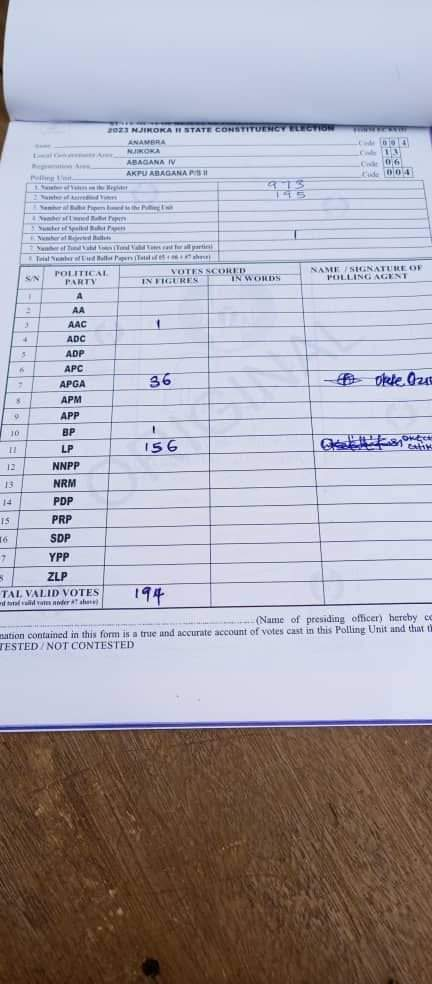 2023 NJIKOKA II STATE CONSTITUENCY ELECTION
State ANAMBRA Code 0 0 4
Local Government Area NJIKOKA Code 1 3
Registration Area ABAGANA IV Code 0 6
Polling Unit AKPU ABAGANA P/S II Code 0 0 4
1. Number of Voters on the Register 973
2. Number of Accredited Voters 195
3. Number of Ballot Papers Issued to the Polling Unit
4. Number of Unused Ballot Papers
5. Number of Spoiled Ballot Papers
6. Number of Rejected Ballots 1
7. Number of Total Valid Votes (Total Valid Votes cast for all parties)
8. Total Number of Used Ballot Papers (Total of #5 + #6 + #7 above)
S/N POLITICAL PARTY VOTES SCORED NAME / SIGNATURE OF POLLING AGENT
IN FIGURES IN WORDS
1 A
2 AA
3 AAC 1
4 ADC
5 ADP
6 APC
7 APGA 36
8 APM
9 APP
10 BP 1
11 LP 156
12 NNPP
13 NRM
14 PDP
15 PRP
16 SDP
7 YPP
8 ZLP
TAL VALID VOTES 194
total valid votes under #7 above)
ORIGINAL
(Name of presiding officer) hereby
mation contained in this form is a true and accurate account of votes cast in this Polling Unit and that
TESTED / NOT CONTESTED